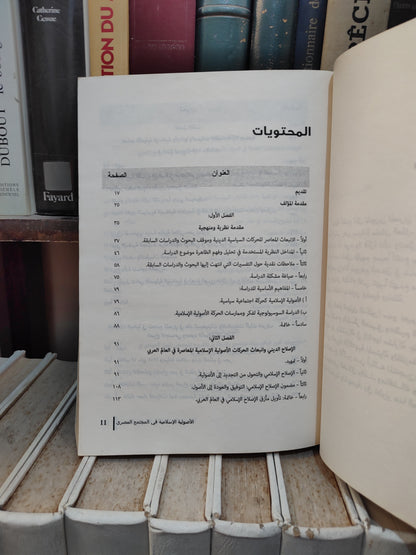 Catherine
Cesue
DUBOUT
Fayard
TION DU
ionnaire de
PÊCH
المحتويات
العنوان الصفحة
تقديم ١٧
مقدمة المؤلف ٢٥
الفصل الأول
مقدمة نظرية ومنهجية ٢٥
أولاً – الانبعاث المعاصر للحركات السياسية الدينية وموقف البحوث والدراسات السابقة. ٣٥
ثانياً – المداخل النظرية المستخدمة في تحليل وفهم الظاهرة موضوع الدراسة. ٣٨
ثالثاً – ملاحظات نقدية حول التفسيرات التي انتهت إليها البحوث والدراسات السابقة. ٥٨
رابعاً – صياغة مشكلة الدراسة. ٦٧
خامساً – المفاهيم الأساسية للدراسة: ٦٩
أ ) الأصولية الإسلامية كحركة اجتماعية سياسية. ٦٩
ب) الدراسة السوسيولوجية للفكر وممارسات الحركة الأصولية الإسلامية. ٧٩
سادساً – خاتمة. ٨٨
الفصل الثاني:
الإصلاح الديني وانبعاث الحركات الأصولية الإسلامية المعاصرة في العالم العربي ٩١
أولاً – تمهيد. ٩١
ثانياً – الإصلاح الإسلامي والتحول من التجديد إلى الأصولية. ٩١
ثالثاً – مضمون الإصلاح الإسلامي: التوفيق والعودة إلى الأصول. ١٠٨
رابعاً – خاتمة: تأويل مأزق الإصلاح الإسلامي في العالم العربي. ١١٣
الأصولية الإسلامية في المجتمع المصري 11